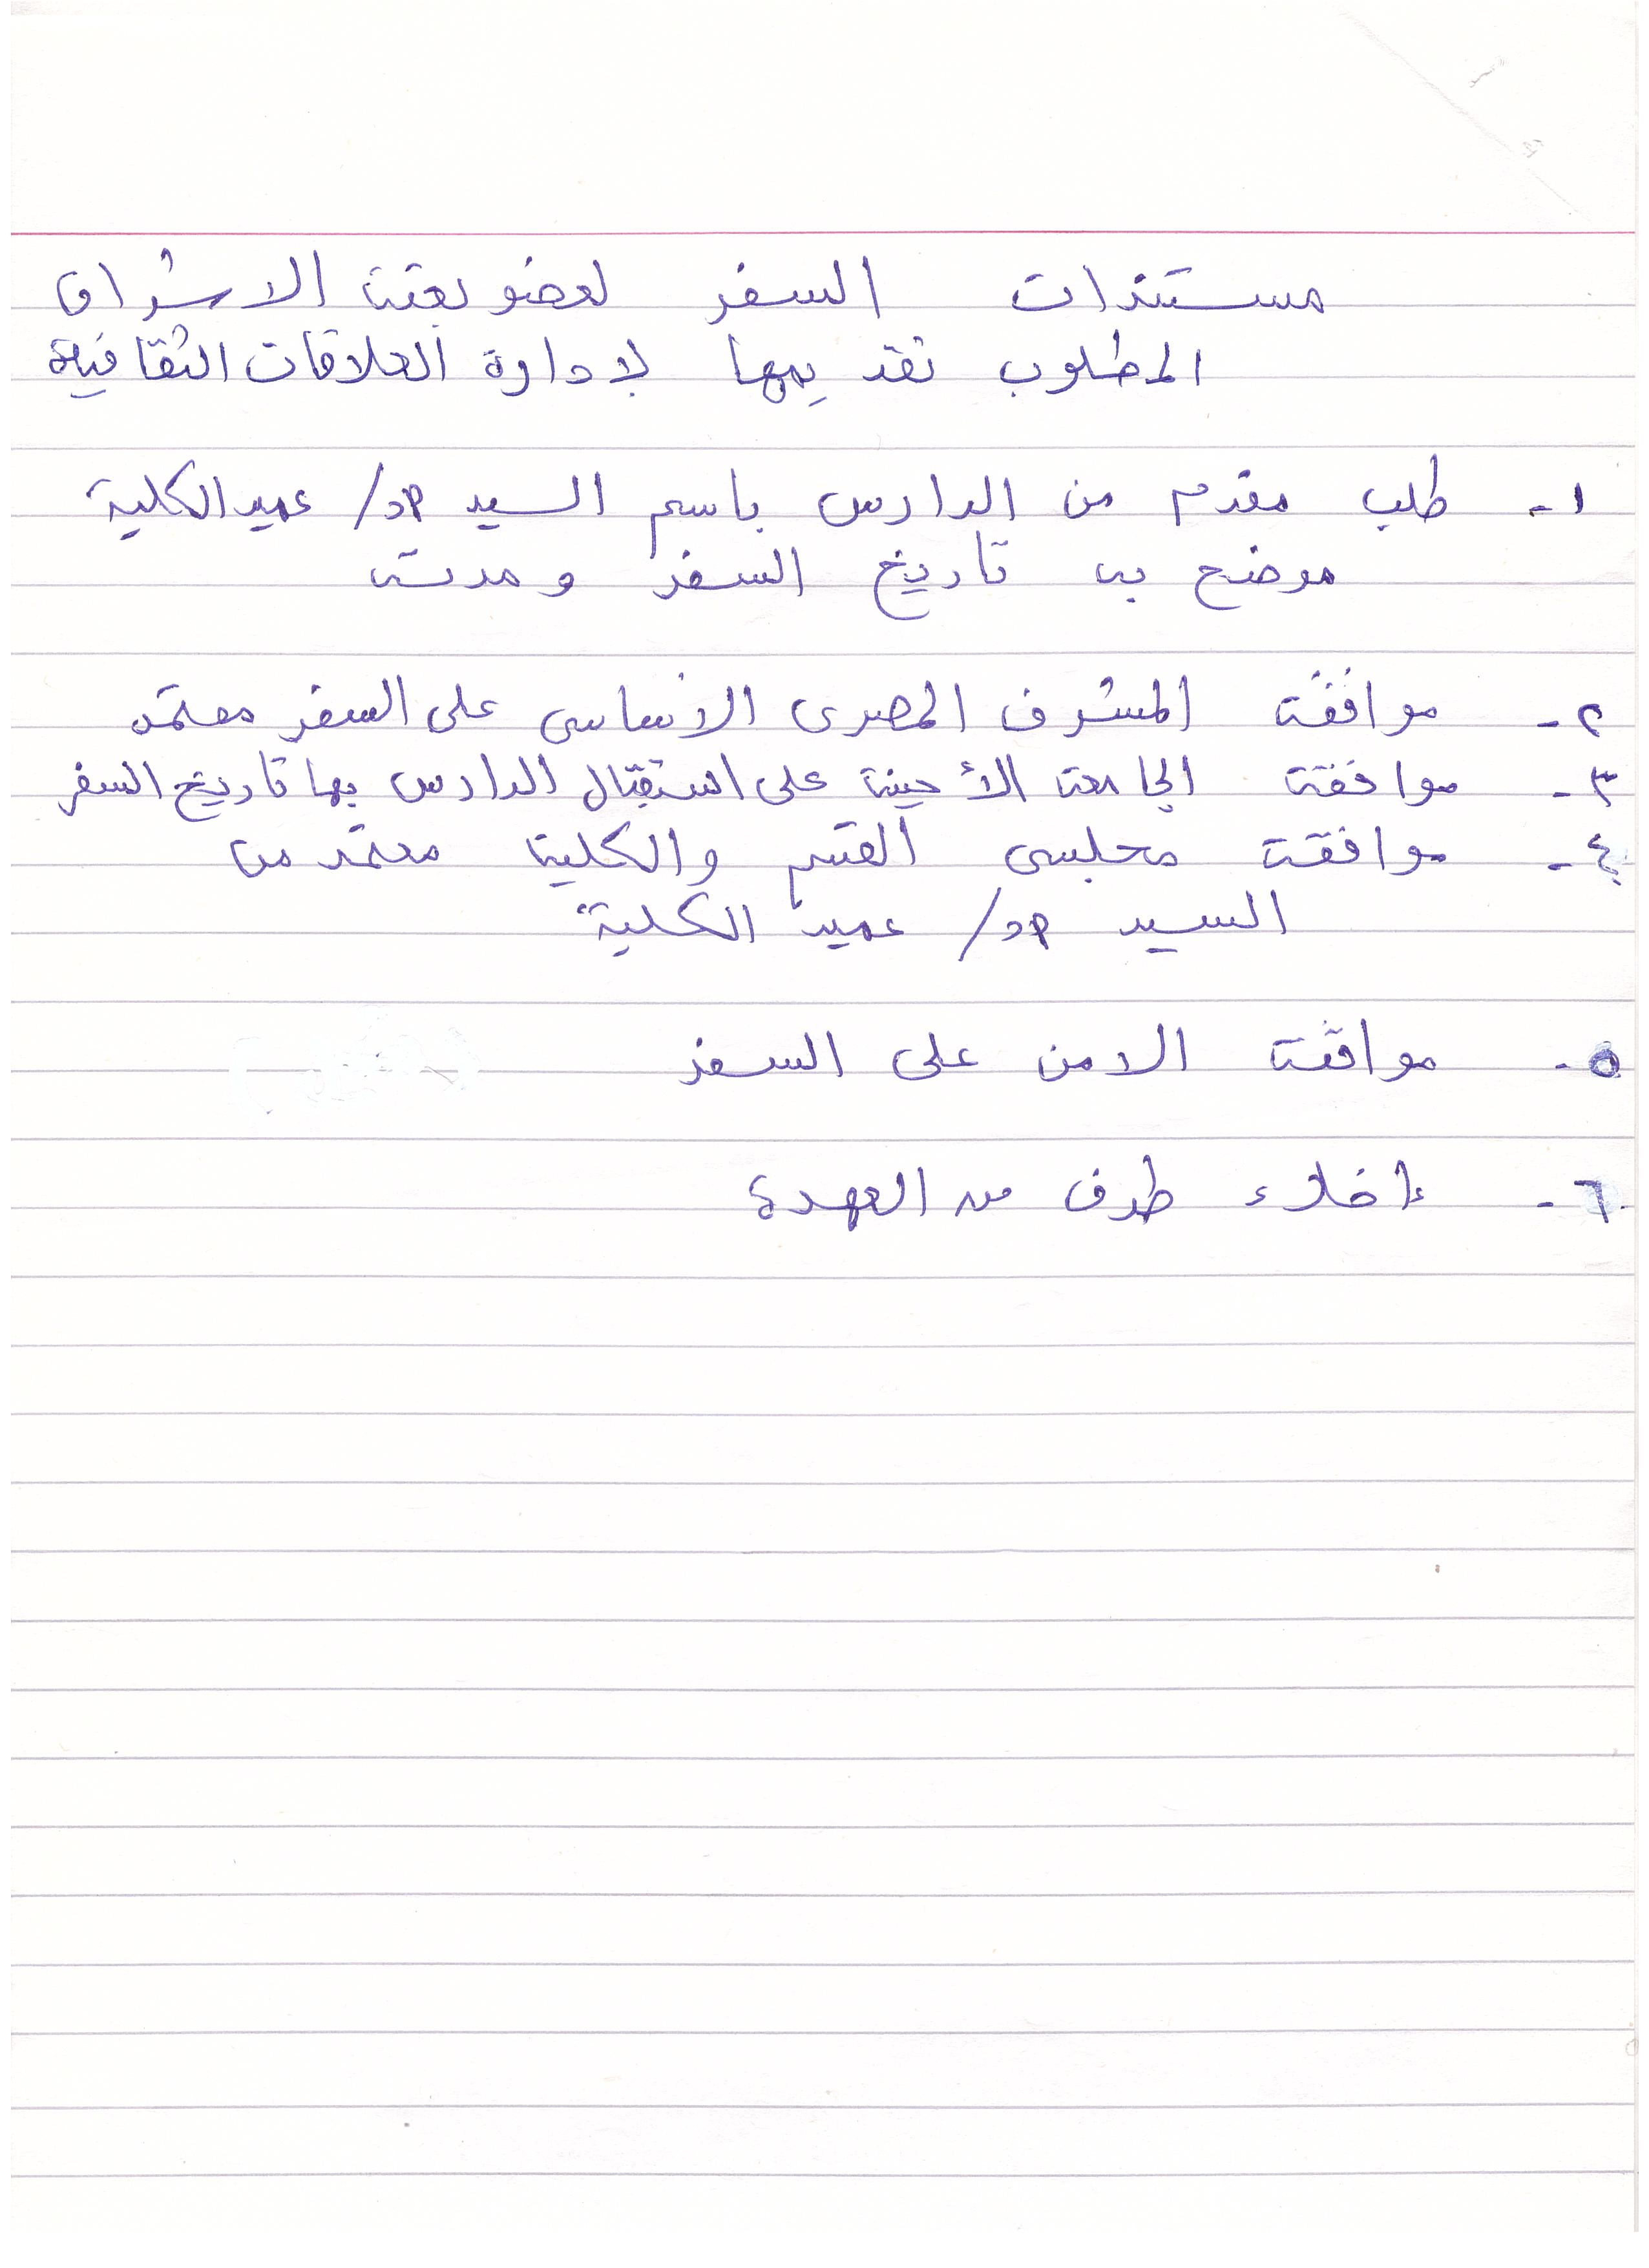 مستندات السفر لعضو بعثة الاشراف
المطلوب تقديمها لإدارة العلاقات الثقافية
١- طلب مقدم من الدارس باسم السيد أ.د/ عميد الكلية
موضح به تاريخ السفر ومدته
٢- موافقة المشرف المصرى الأساسى على السفر معتمد
٣- موافقة الجامعة الأجنبية على استقبال الدارس بها تاريخ السفر
٤- موافقة مجلسى القسم والكلية معتمد من
السيد أ.د/ عميد الكلية
٥- موافقة الامن على السفر
٦- إخلاء طرف من العهدة